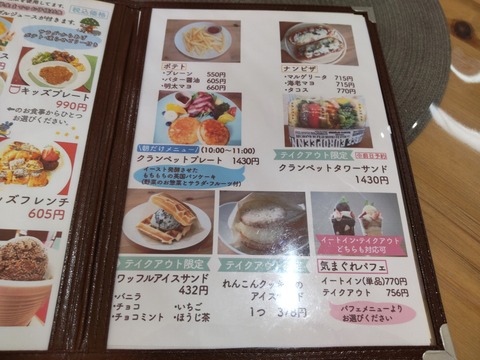 税込価格
キッズプレート
990円
のお食事からひとつ
お選びください。
ズフレンチ
605円
ポテト
・プレーン 550円
・バター醤油 605円
・明太マヨ 660円
ナンピザ
・マルゲリータ 715円
・海老マヨ 715円
・タコス 770円
朝だけメニュー (10:00~11:00)
クランペットプレート 1430円
イースト発酵させた
もちもちの英国パンケーキ
(野菜のお惣菜とサラダ・フルーツ付)
テイクアウト限定
クランペットタワーサンド
1430円
テイクアウト限定
ワッフルアイスサンド
432円
・バニラ
・チョコ ・いちご
・チョコミント ・ほうじ茶
テイクアウト限定
れんこんクッキーの
アイスサンド
1つ 378円
イートイン・テイクアウト
どちらも対応可
気まぐれパフェ
イートイン(単品)770円
テイクアウト 756円
パフェメニューより
お選びください